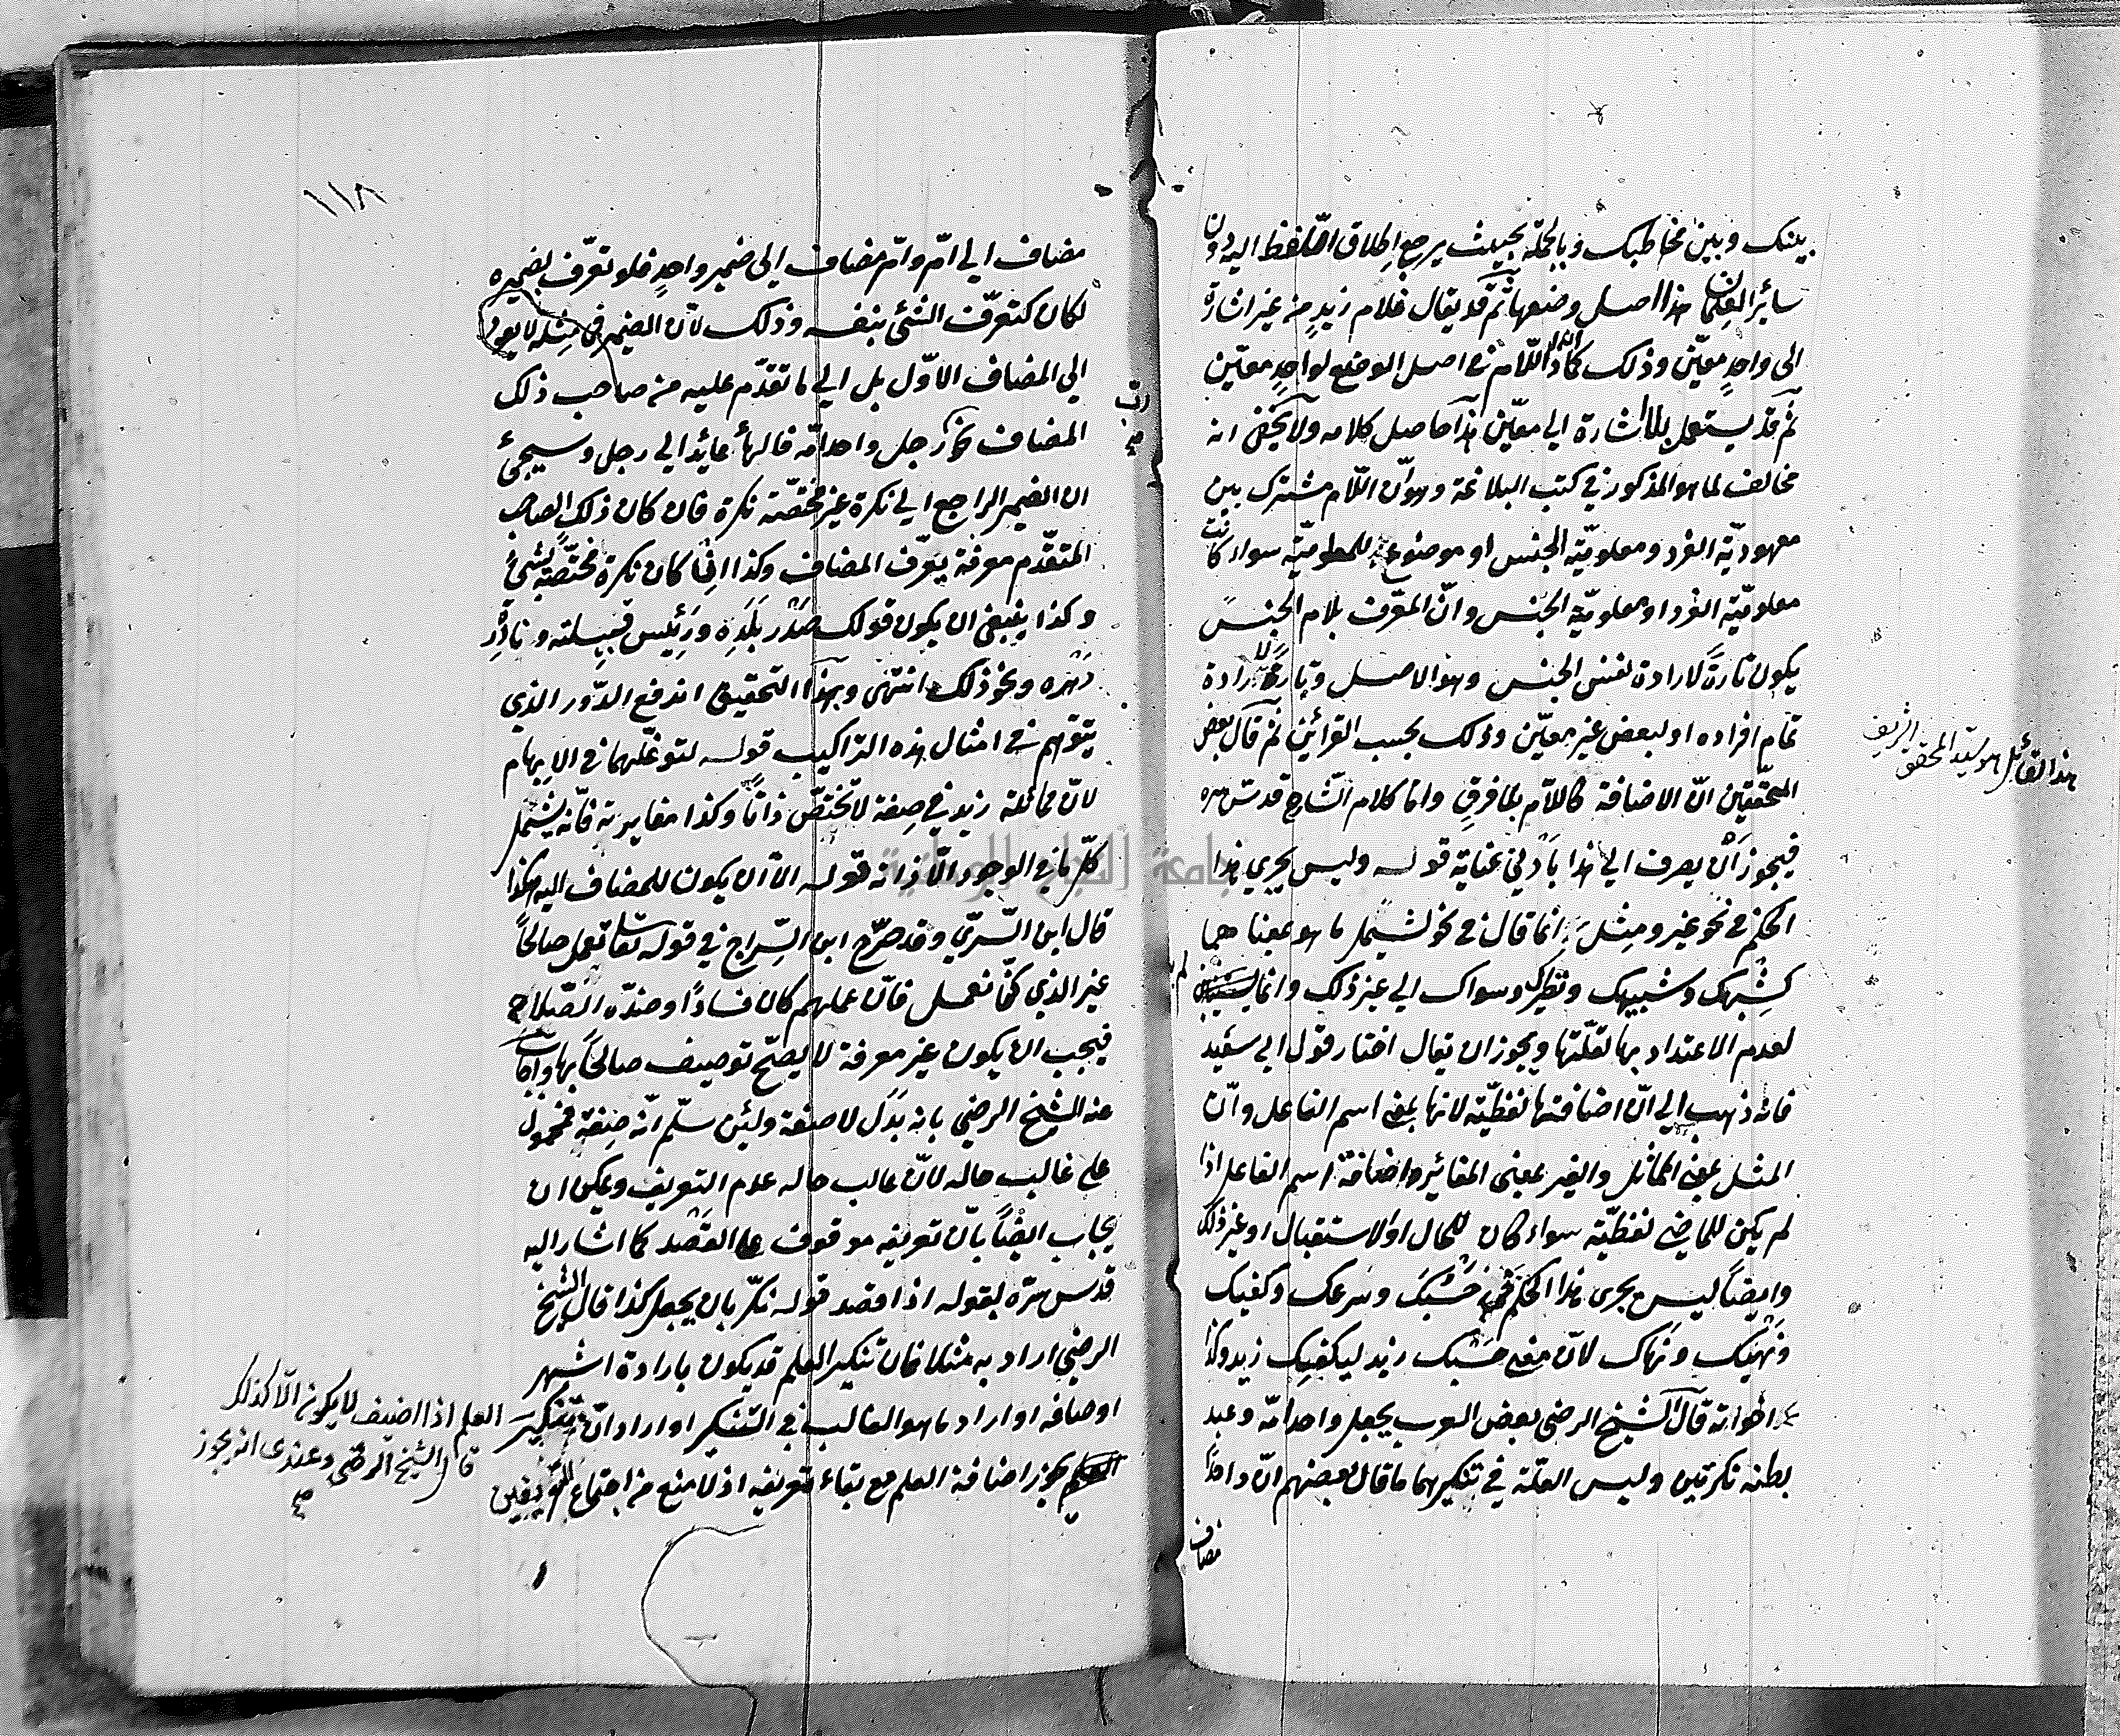 بينك وبين مخاطبك وبالجملة بحيث يرجع اطلاق اللفظ اليه دون
سائر الغلمان هذا اصل وضعها ثم قد يقال غلام زيد من غير اشارة
الى واحد معيّن وذلك كما ان اللام في اصل الوضع لواحد معيّن
ثم قد يستعمل بلا اشارة الى معيّن هذا حاصل كلامه ولا يخفى انه
مخالف لما هو المذكور في كتب البلاغة وهو انّ اللام مشترك بين
معهوديّة الفرد ومعلوميّة الجنس او موضوع للمعلوميّة سواء كانت
معلوميّة الفرد او معلوميّة الجنس وانّ المعرّف بلام الجنس
يكون تارة لارادة نفس الجنس وهو الاصل وتارة لارادة
تمام افراده او لبعض غير معيّن وذلك بحسب القرائن ثم قال بعض
المحقّقين انّ الاضافة كاللام بلا فرق واما كلام الشارح قدّس سره
فيجوز أن يصرف الى هذا بأدنى عناية قوله وليس يجري هذا
الحكم في نحو غير ومثل انما قال في نحو لشمل ما هو بمعناهما
كشبهك وشبيهك ونظيرك وسواك الى غير ذلك وانما لم
لعدم الاعتداد بها لقلّتها ويجوز ان يقال اختار قول ابي سعيد
فانه ذهب الى انّ اضافتها لفظيّة لانها بمعنى اسم الفاعل وانّ
المثل بمعنى المماثل والغير بمعنى المغائر واضافة اسم الفاعل اذا
لم يكن للماضي لفظيّة سواء كان للحال او الاستقبال او غير ذلك
وايضاً ليس يجرى هذا الحكم في حسبك وشرعك وكفيك
ونهيك ونهاك لانّ معنى حسبك زيد ليكفيك زيد وكذا
اخواته قال الشيخ الرضى بعض العرب يجعل واحد امّه وعبد
بطنه نكرتين وليس العلّة في تنكيرهما ما قال بعضهم انّ واحدا
مضاف
هذا القائل هو السيد المحقق الشريف
١١٨
مضاف الى امّ وامّ مضاف الى ضمير واحد فلو تعرّف بضميره
لكان كتعرّف الشئ بنفسه وذلك لانّ الضمير في مثله لا يعود
الى المضاف الاوّل بل الى ما تقدّم عليه من صاحب ذلك
المضاف نحو ربّ رجل واحد امّه فالهاء عائد الى رجل وسيجئ
ان الضمير الراجع الى نكرة غير مختصّة نكرة فان كان ذلك الصاحب
المتقدّم معرفة يعرّف المضاف وكذا اذا كان نكرة مختصّة بشئ
وكذا ينبغى ان يكون قولك صدر بلده ورئيس قبيلته ونادر
دهره ونحو ذلك انتهى وبهذا التحقيق اندفع الدّور الذي
يتوهم في امثال هذه التراكيب قوله لتوغّلهما في الابهام
لانّ مماثلة زيد في صفة لا تختصّ ذاتاً وكذا مغايرته فانّه يشمل
كلّ ما في الوجود الّا ذاته قوله الّا ان يكون للمضاف اليه هكذا
قال ابن السّريّ وقد صرّح ابن السّراج في قوله تعالى نعمل صالحاً
غير الذي كنّا نعمل فانّ عملهم كان فسادًا وضدّه الصّلاح
فيجب ان يكون غير معرفة لا يصحّ توصيف صالحًا بها واجاب
عنه الشيخ الرضي بانه بدل لا صفة ولئن سلّم انّه صفة فمحمول
على غالب حاله لانّ غالب حاله عدم التعريف ويمكن ان
يجاب ايضًا بانّ تعريفه موقوف على القصد كما اشار اليه
قدس سرّه بقوله اذا قصد قوله نكّر بان يجعل كذا قال الشيخ
الرضي اراد به مثلا فان تنكير العلم قد يكون بارادة اشهر
اوصافه او اراد ما هو الغالب في التنكير او اراد انّ تنكير العلم اذا اضيف لا يكون الّا كذلك
قال الشيخ الرضى وعندى انه يجوز
صح
يجوز اضافة العلم مع بقاء تعريفه اذ لا منع من اجتماع التعريفين
ربّ
صح
جامعة النجاح الوطنية